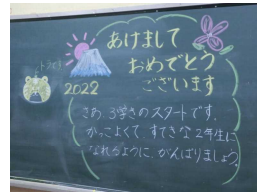 あけまして
おめでとう
ございます
2022
さあ、3学きのスタートです。
かっこよくて、すてきな2年生に
なれるように、がんばりましょう。